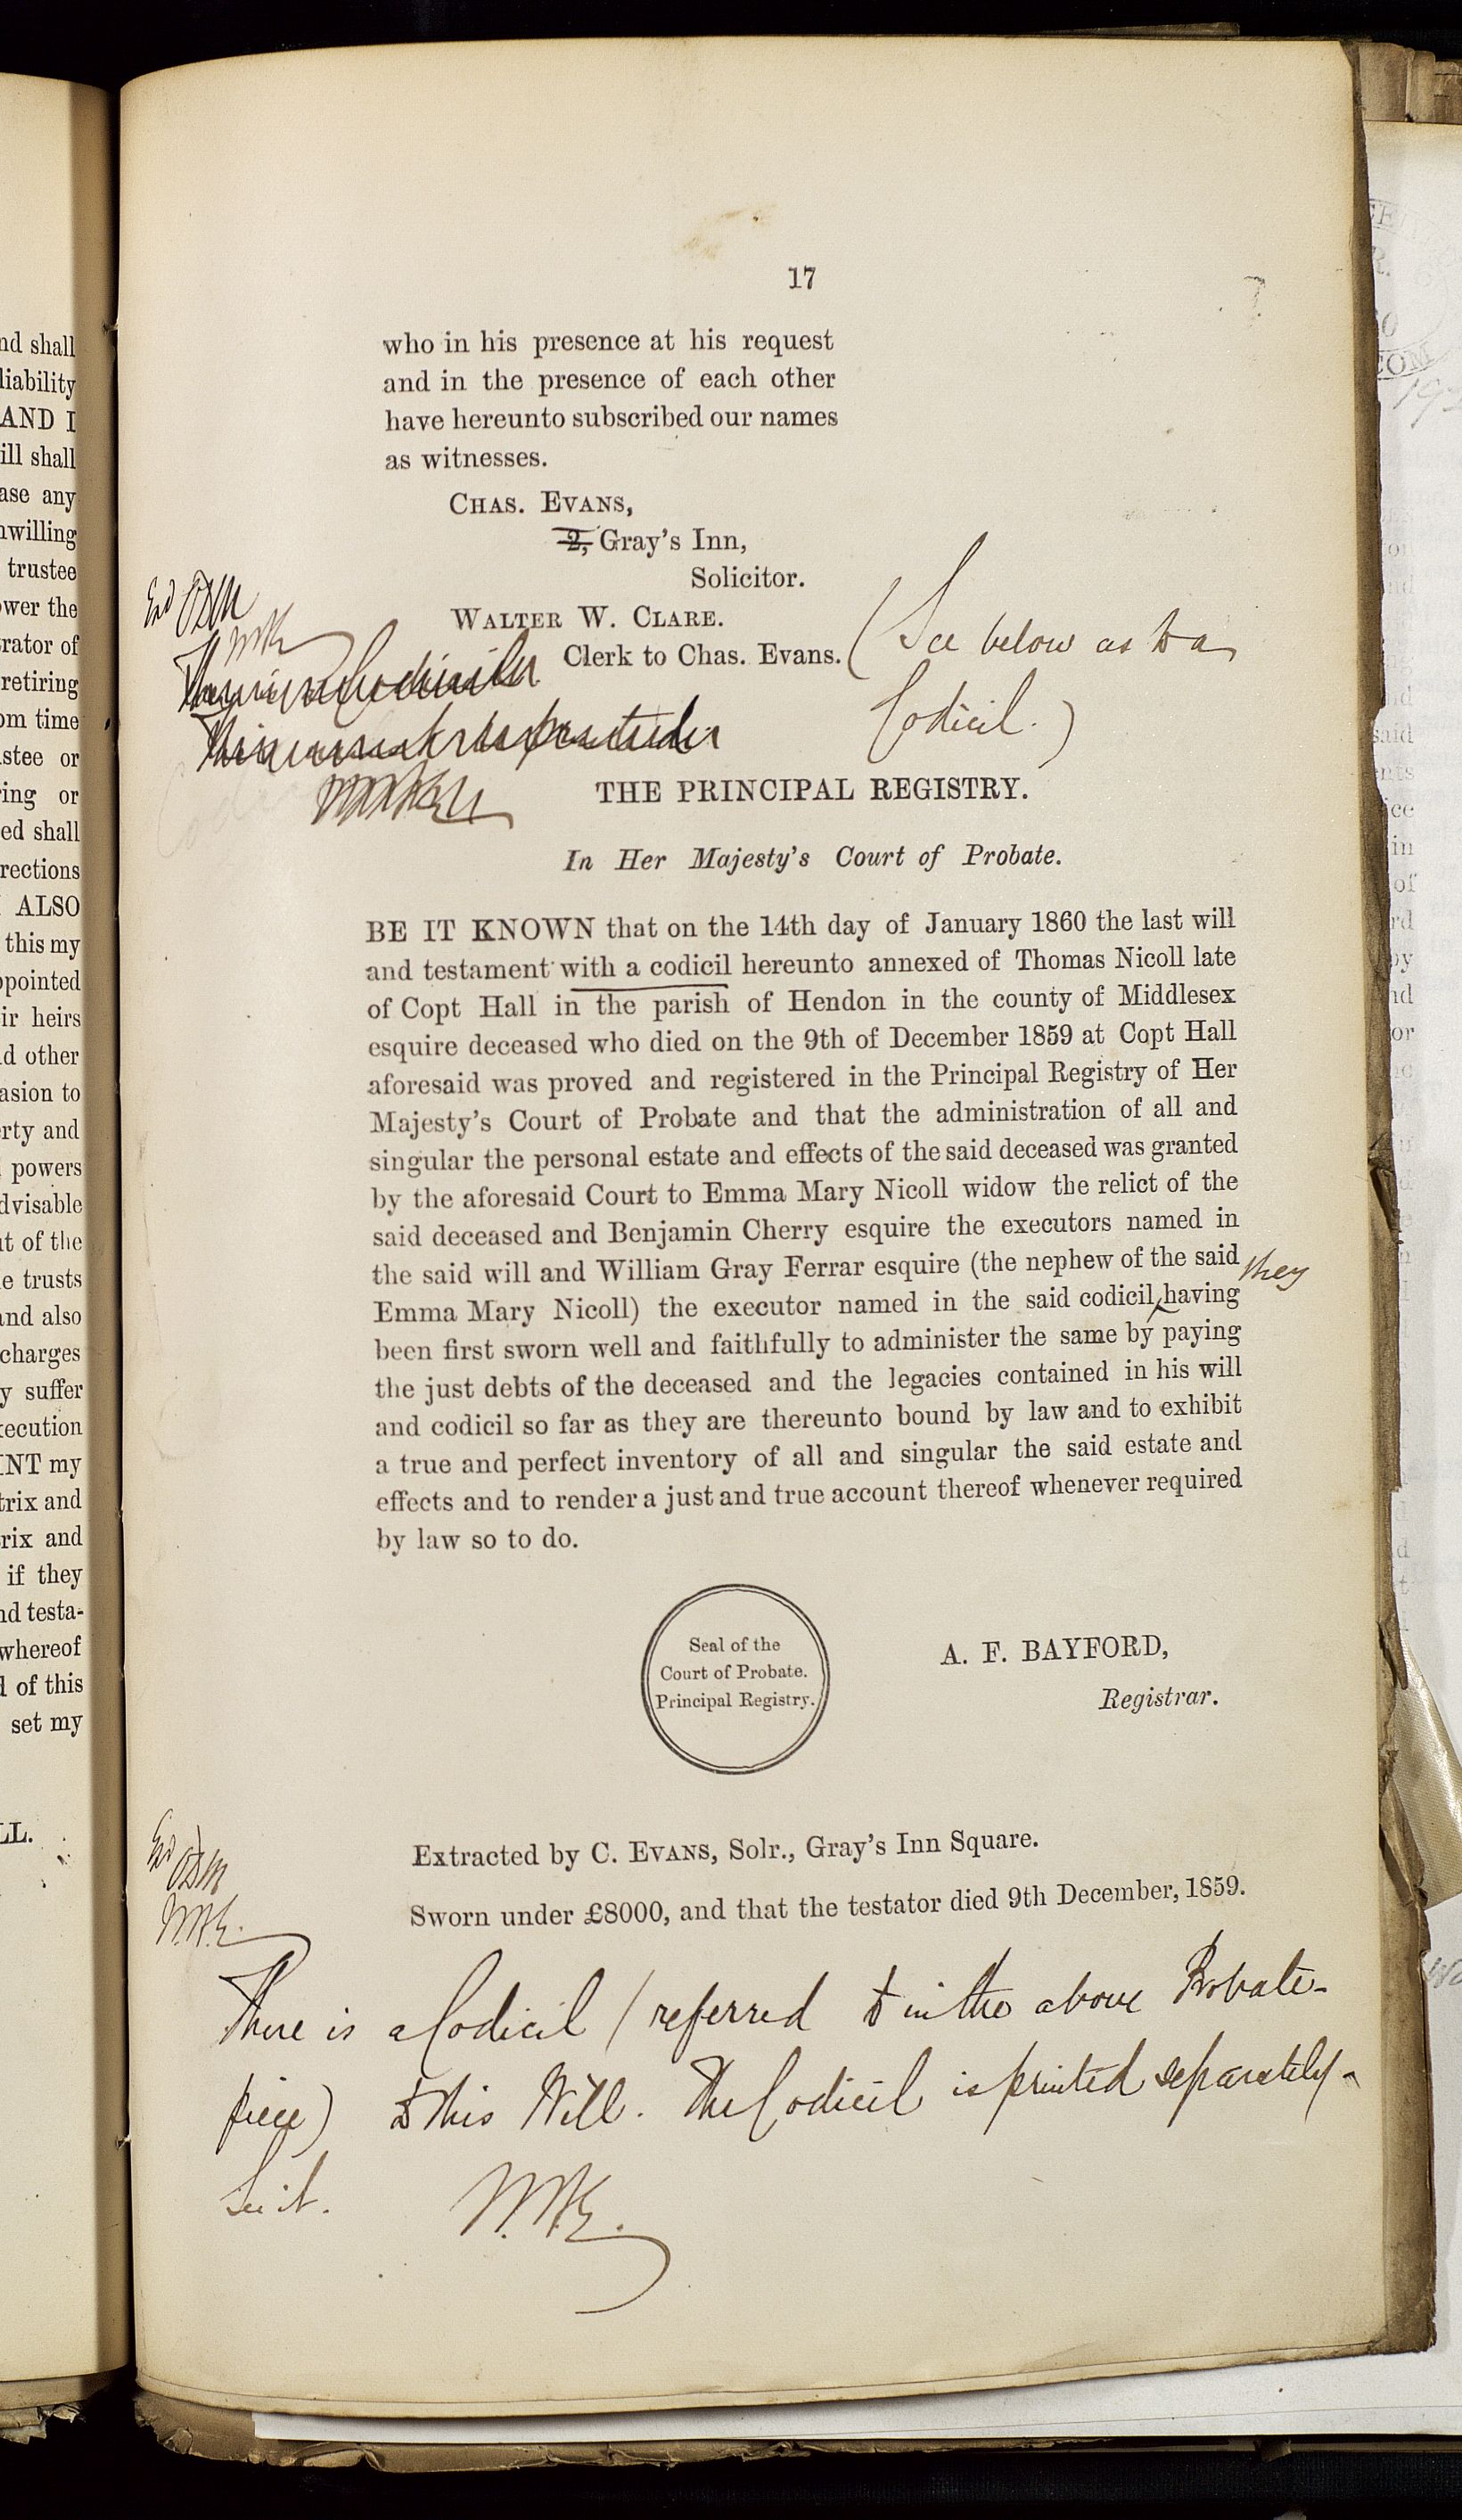 17
who in his presence at his request
and in the presence of each other
have hereunto subscribed our names
as witnesses.
CHAS. EVANS,
2, Gray's Inn,
Solicitor.
WALTER W. CLARE.
Clerk to Chas. Evans.
(See below as to a
Codicil.)
THE PRINCIPAL REGISTRY.
In Her Majesty's Court of Probate.
BE IT KNOWN that on the 14th day of January 1860 the last will
and testament with a codicil hereunto annexed of Thomas Nicoll late
of Copt Hall in the parish of Hendon in the county of Middlesex
esquire deceased who died on the 9th of December 1859 at Copt Hall
aforesaid was proved and registered in the Principal Registry of Her
Majesty's Court of Probate and that the administration of all and
singular the personal estate and effects of the said deceased was granted
by the aforesaid Court to Emma Mary Nicoll widow the relict of the
said deceased and Benjamin Cherry esquire the executors named in
the said will and William Gray Ferrar esquire (the nephew of the said
they
Emma Mary Nicoll) the executor named in the said codicil having
been first sworn well and faithfully to administer the same by paying
the just debts of the deceased and the legacies contained in his will
and codicil so far as they are thereunto bound by law and to exhibit
a true and perfect inventory of all and singular the said estate and
effects and to render a just and true account thereof whenever required
by law so to do.
Seal of the
Court of Probate.
Principal Registry.
A. F. BAYFORD,
Registrar.
Extracted by C. EVANS, Solr., Gray's Inn Square.
Sworn under £8000, and that the testator died 9th December, 1859.
There is a Codicil (referred to in the above Probate-
piece) to this Will. The Codicil is printed separately-
See it.
nd shall
liability
AND I
ill shall
ase any
willing
trustee
ower the
rator of
retiring
om time
stee or
ing or
ed shall
rections
ALSO
this my
ppointed
ir heirs
d other
asion to
rty and
powers
dvisable
t of the
e trusts
and also
charges
y suffer
xecution
INT my
trix and
rix and
if they
nd testa-
whereof
of this
set my
LL.